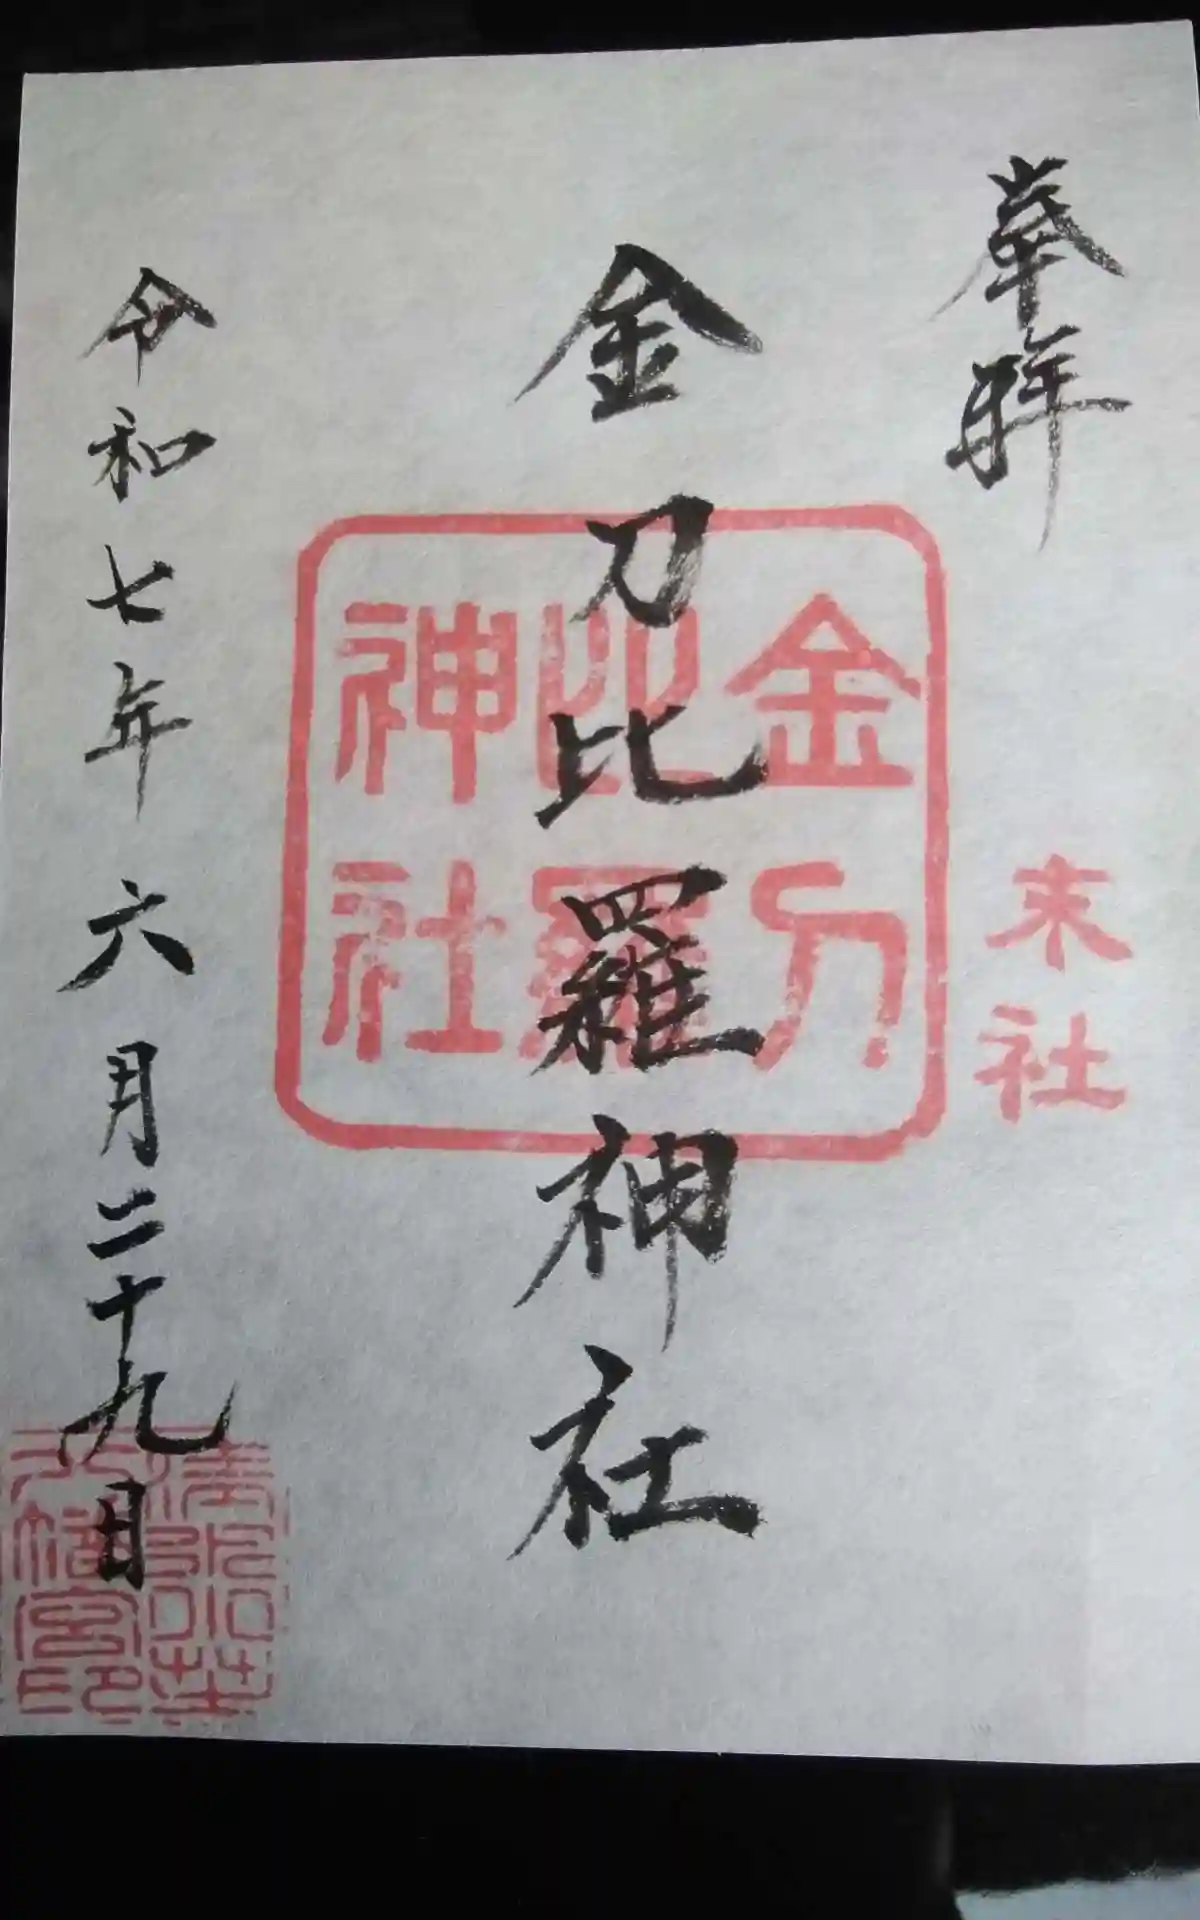 奉拝
末社
金刀比羅神社
金刀
比羅
神社
令和七年六月二十九日